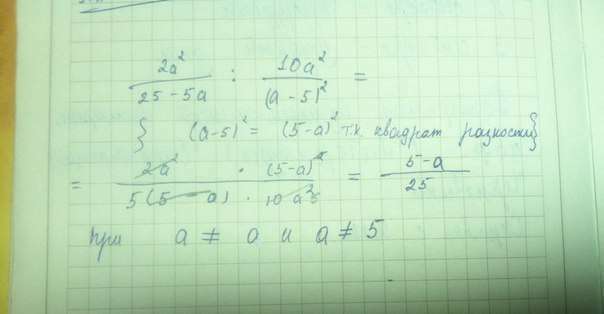 2a² / (25 - 5a) : 10a² / (a - 5)² =
{ (a-5)² = (5-a)² т.к. квадрат разности}
= 2a² · (5-a)² / 5(5-a) · 10a² = 5-a / 25
при a ≠ 0 и a ≠ 5